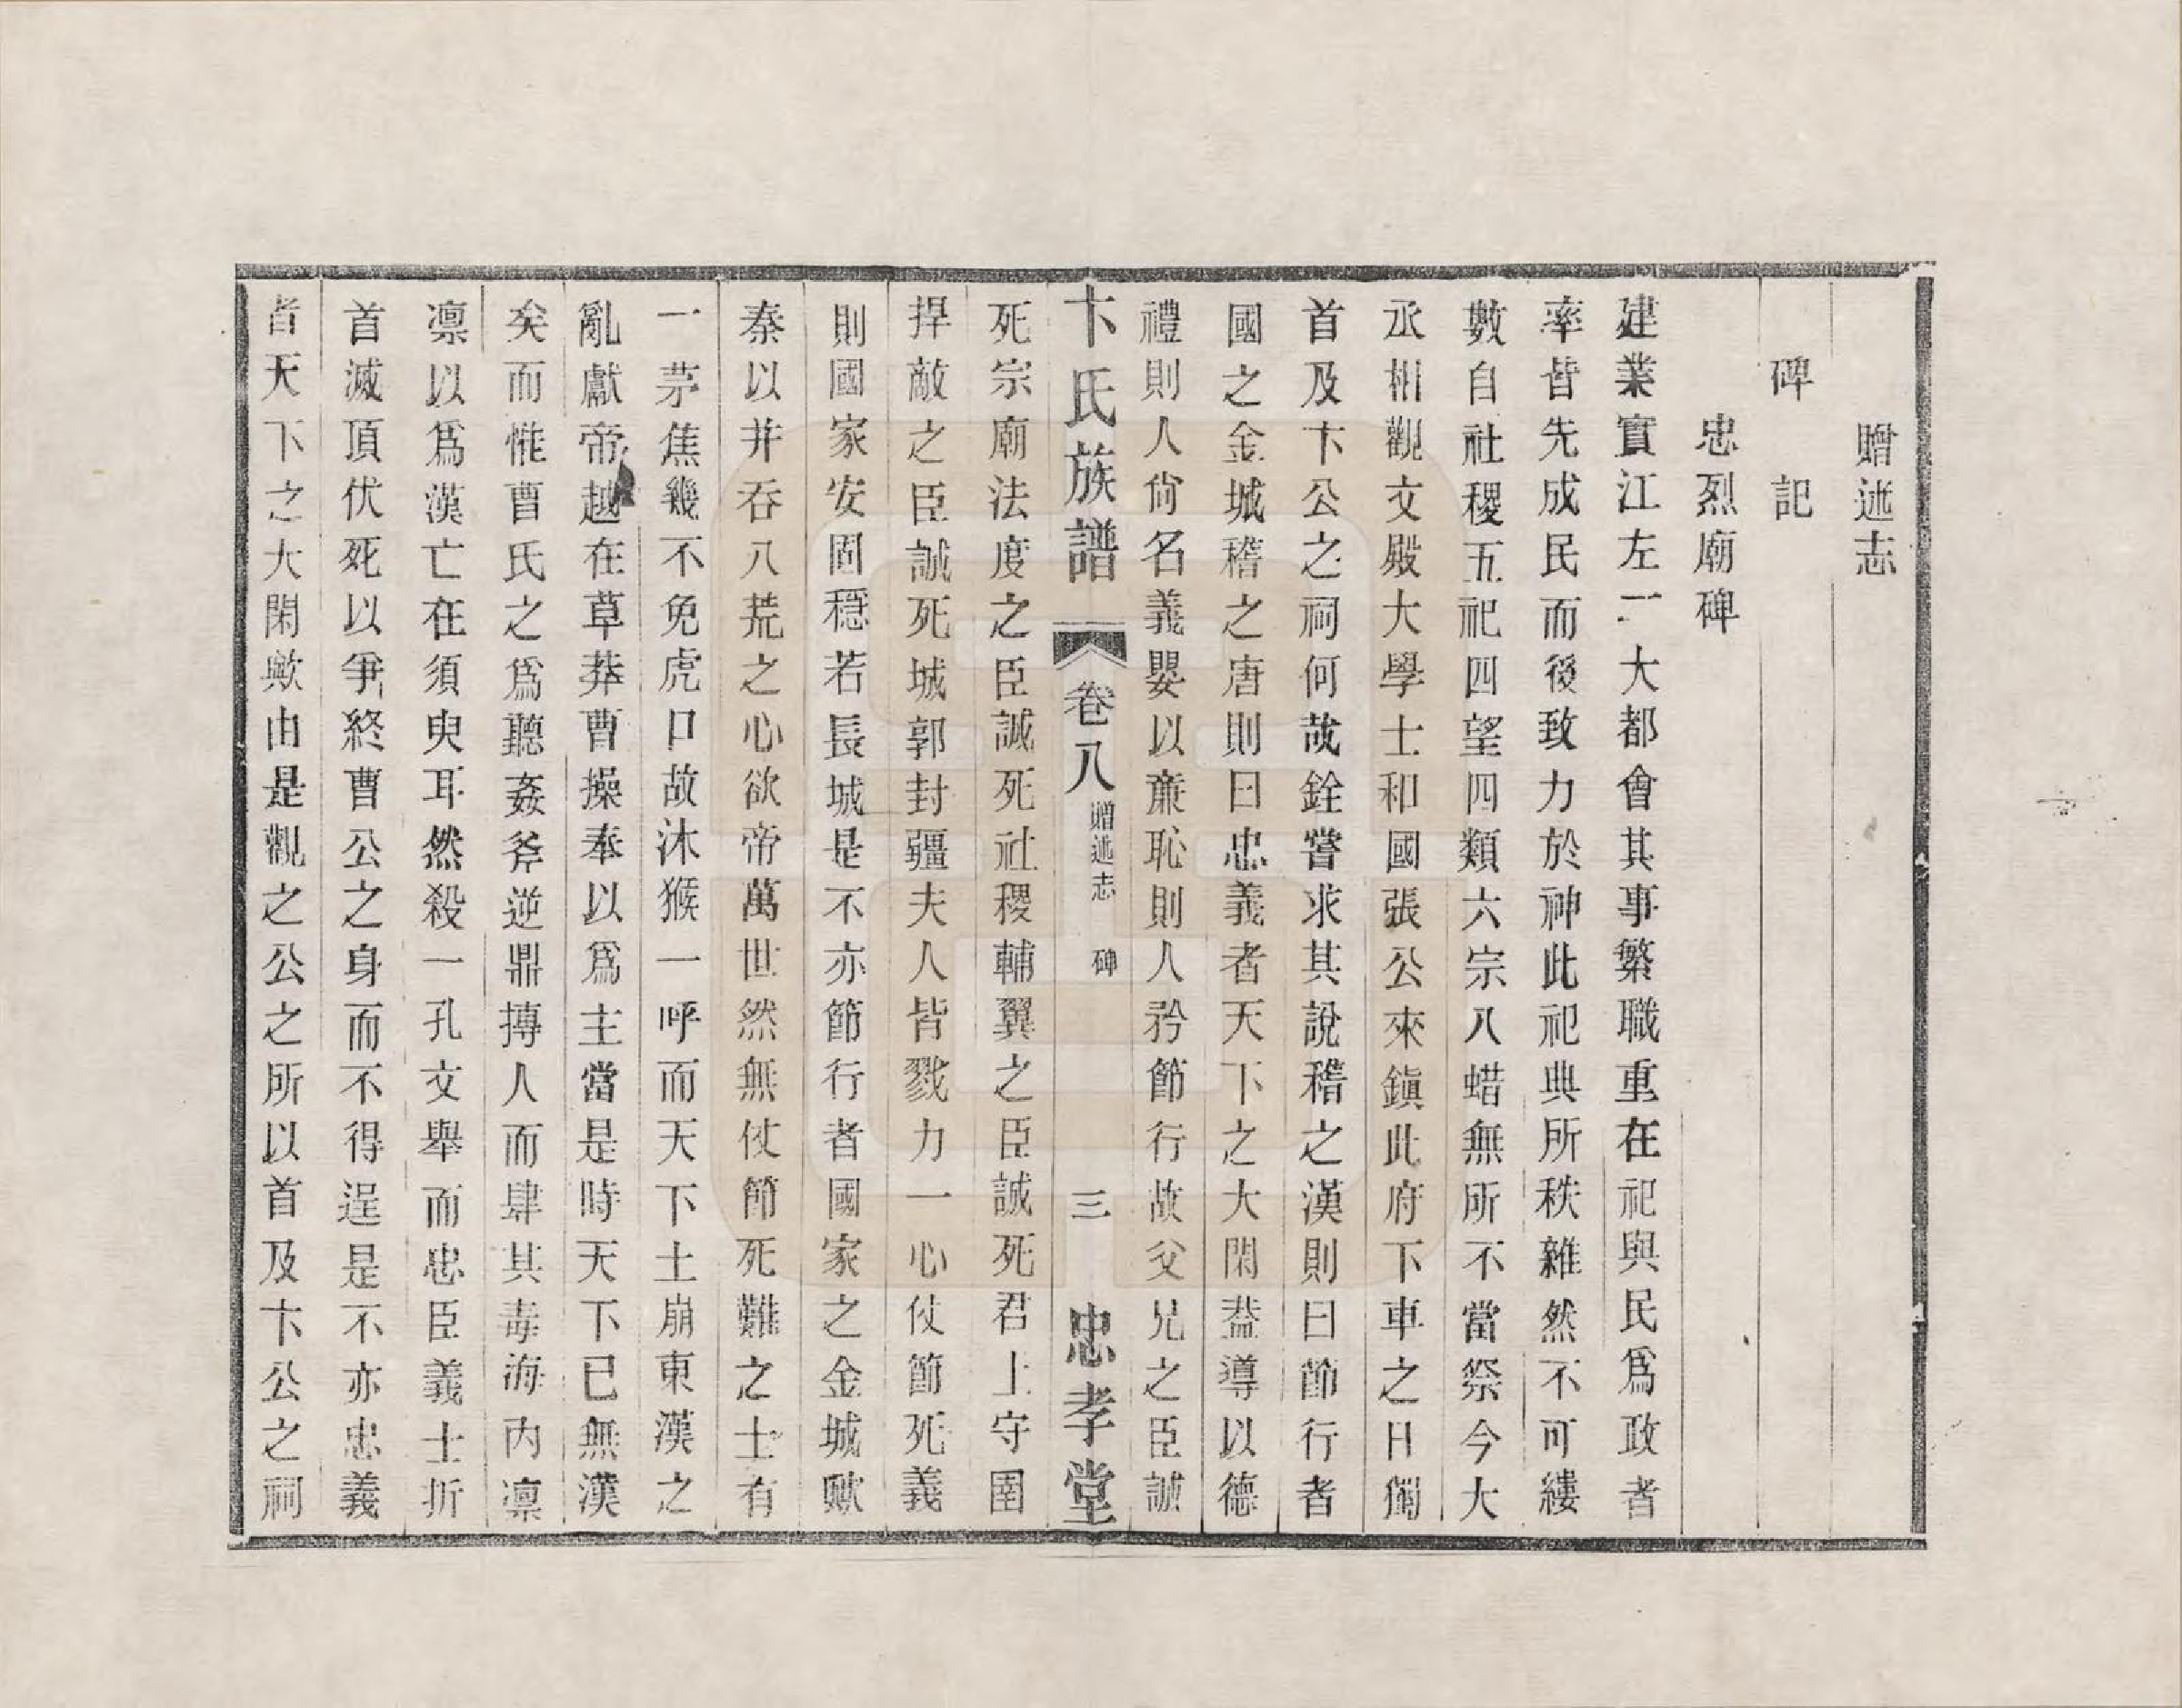 贈述志
碑記
忠烈廟碑
建業實江左一大都會其事繁職重在祀與民爲政者
率皆先成民而後致力於神此祀典所秩雜然不可縷
數自社稷五祀四望四類六宗八蜡無所不當祭今大
丞相觀文殿大學士和國張公來鎮此府下車之日獨
首及卞公之祠何哉銓嘗求其說稽之漢則曰節行者
國之金城稽之唐則曰忠義者天下之大閑葢導以德
禮則人尙名義嬰以廉恥則人矜節行故父兄之臣誠
卞氏族譜 卷八 贈述志 碑 三 忠孝堂
死宗廟法度之臣誠死社稷輔翼之臣誠死君上守圉
捍敵之臣誠死城郭封疆夫人皆戮力一心仗節死義
則國家安固穩若長城是不亦節行者國家之金城歟
秦以并吞八荒之心欲帝萬世然無仗節死難之士有
一茅焦幾不免虎口故沐猴一呼而天下土崩東漢之
亂獻帝越在草莽曹操奉以爲主當是時天下已無漢
矣而惟曹氏之爲聽姦斧逆鼎摶人而肆其毒海內凛
凛以爲漢亡在須臾耳然殺一孔文舉而忠臣義士折
首滅頂伏死以爭終曹公之身而不得逞是不亦忠義
者天下之大閑歟由是觀之公之所以首及卞公之祠